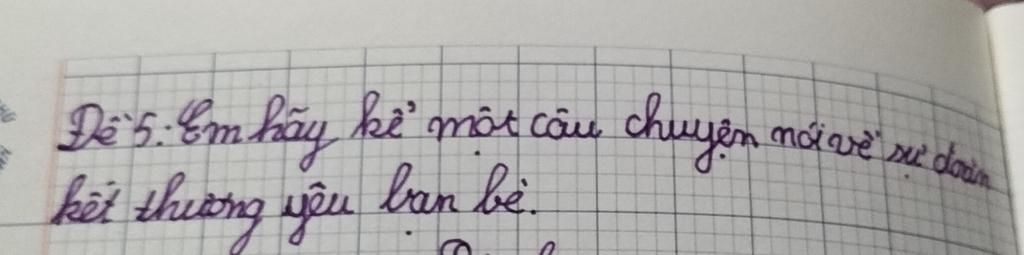 Đề 5: Em hãy kể một câu chuyện nói về sự đoàn
kết thương yêu bạn bè.